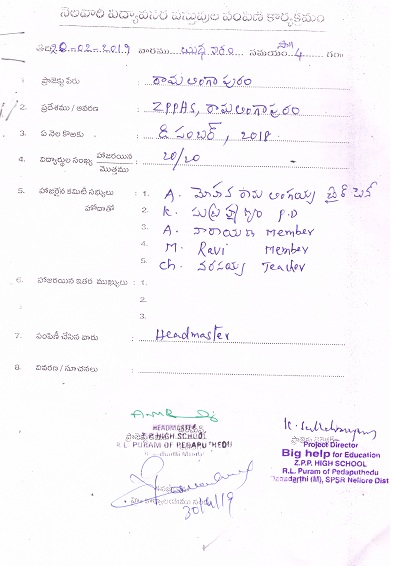 నెలవారి విద్యావసర వస్తువుల పంపిణి కార్యక్రమం
తేది 20-02-2019 వారము బుధవారం సమయం సా 4 గం
1. ప్రాజెక్టు పేరు : రామలింగాపురం
2. ప్రదేశము / ఆవరణ : ZPPHS, రామలింగాపురం
3. ఏ నెల కొఱకు : డిసెంబర్, 2018
4. విద్యార్థుల సంఖ్య హాజరయిన / మొత్తము : 20/20
5. హాజరైన కమిటీ సభ్యులు : 1. A. మోహన రామ లింగయ్య ఛైర్ మెన్
హోదాతో 2. K. P.D
3. A. నారాయణ Member
4. M. Ravi Member
5. Ch. నరసయ్య Teacher
6. హాజరయిన ఇతర ముఖ్యులు : 1.
2.
3.
7. పంపిణీ చేసిన వారు : Headmaster
8. వివరణ / సూచనలు :
HEADMASTER
Z.P. HIGH SCHOOL
R.L. PURAM OF PEDAPUTHEDU
Project Director
Big help for Education
Z.P.P. HIGH SCHOOL
R.L. Puram of Pedaputhedu
(M), SPSR Nellore Dist
30/4/19